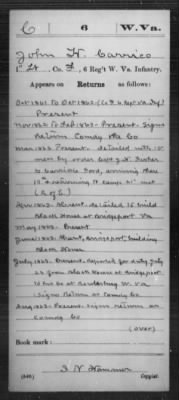 C 6 W.Va.
John H. Carrico
1st Lt, Co. F, 6 Reg't W. Va. Infantry.
Appears on Returns as follows:
Oct 1861 to Oct 1862
Present
Nov 1862 to Feb 1863 - Present. Signs
Return Comdg the Co
Mar 1863 Present. detailed with 10
men by order
to Ford, arriving there
Apr 1863 Absent. detailed to build
Block House at Bridgeport Va
May 1863 - Present
June 1863 Absent, Bridgeport, building
Block House
July 1863 - Present. Reported for duty July
23 from Block House at Bridgeport
W. Va
Signs Return as Comdg Co
Aug 1863 - Present. Signs return as
Comdg Co
(over)
Book mark:
(546) Copyist.